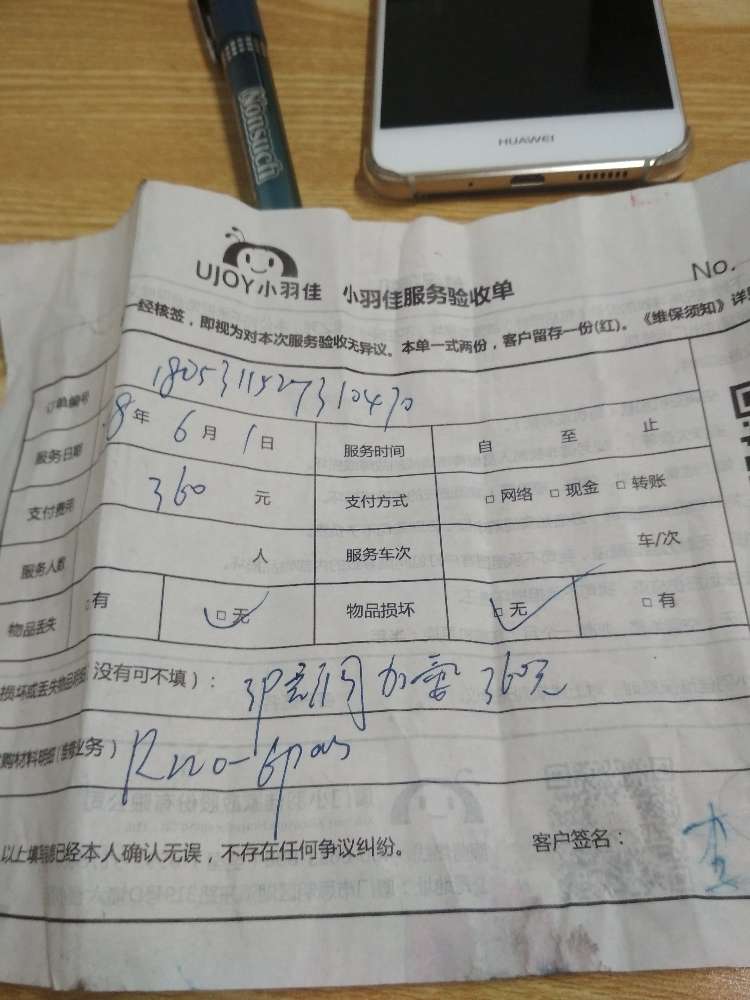 Nonsuch
HUAWEI
UJOY小羽佳 小羽佳服务验收单 No.
一经核签，即视为对本次服务验收无异议。本单一式两份，客户留存一份(红)。《维保须知》详
订单编号 1805311527310470
服务日期 8年 6月 1日 服务时间 自 至 止
支付费用 360 元 支付方式 □网络 □现金 □转账
服务人数 人 服务车次 车/次
物品丢失 □有 □无 物品损坏 □无 □有
损坏或丢失物品 没有可不填）： 3P 加雪 360元
购材料明细(维修业务)
以上填写信息已经本人确认无误，不存在任何争议纠纷。 客户签名：